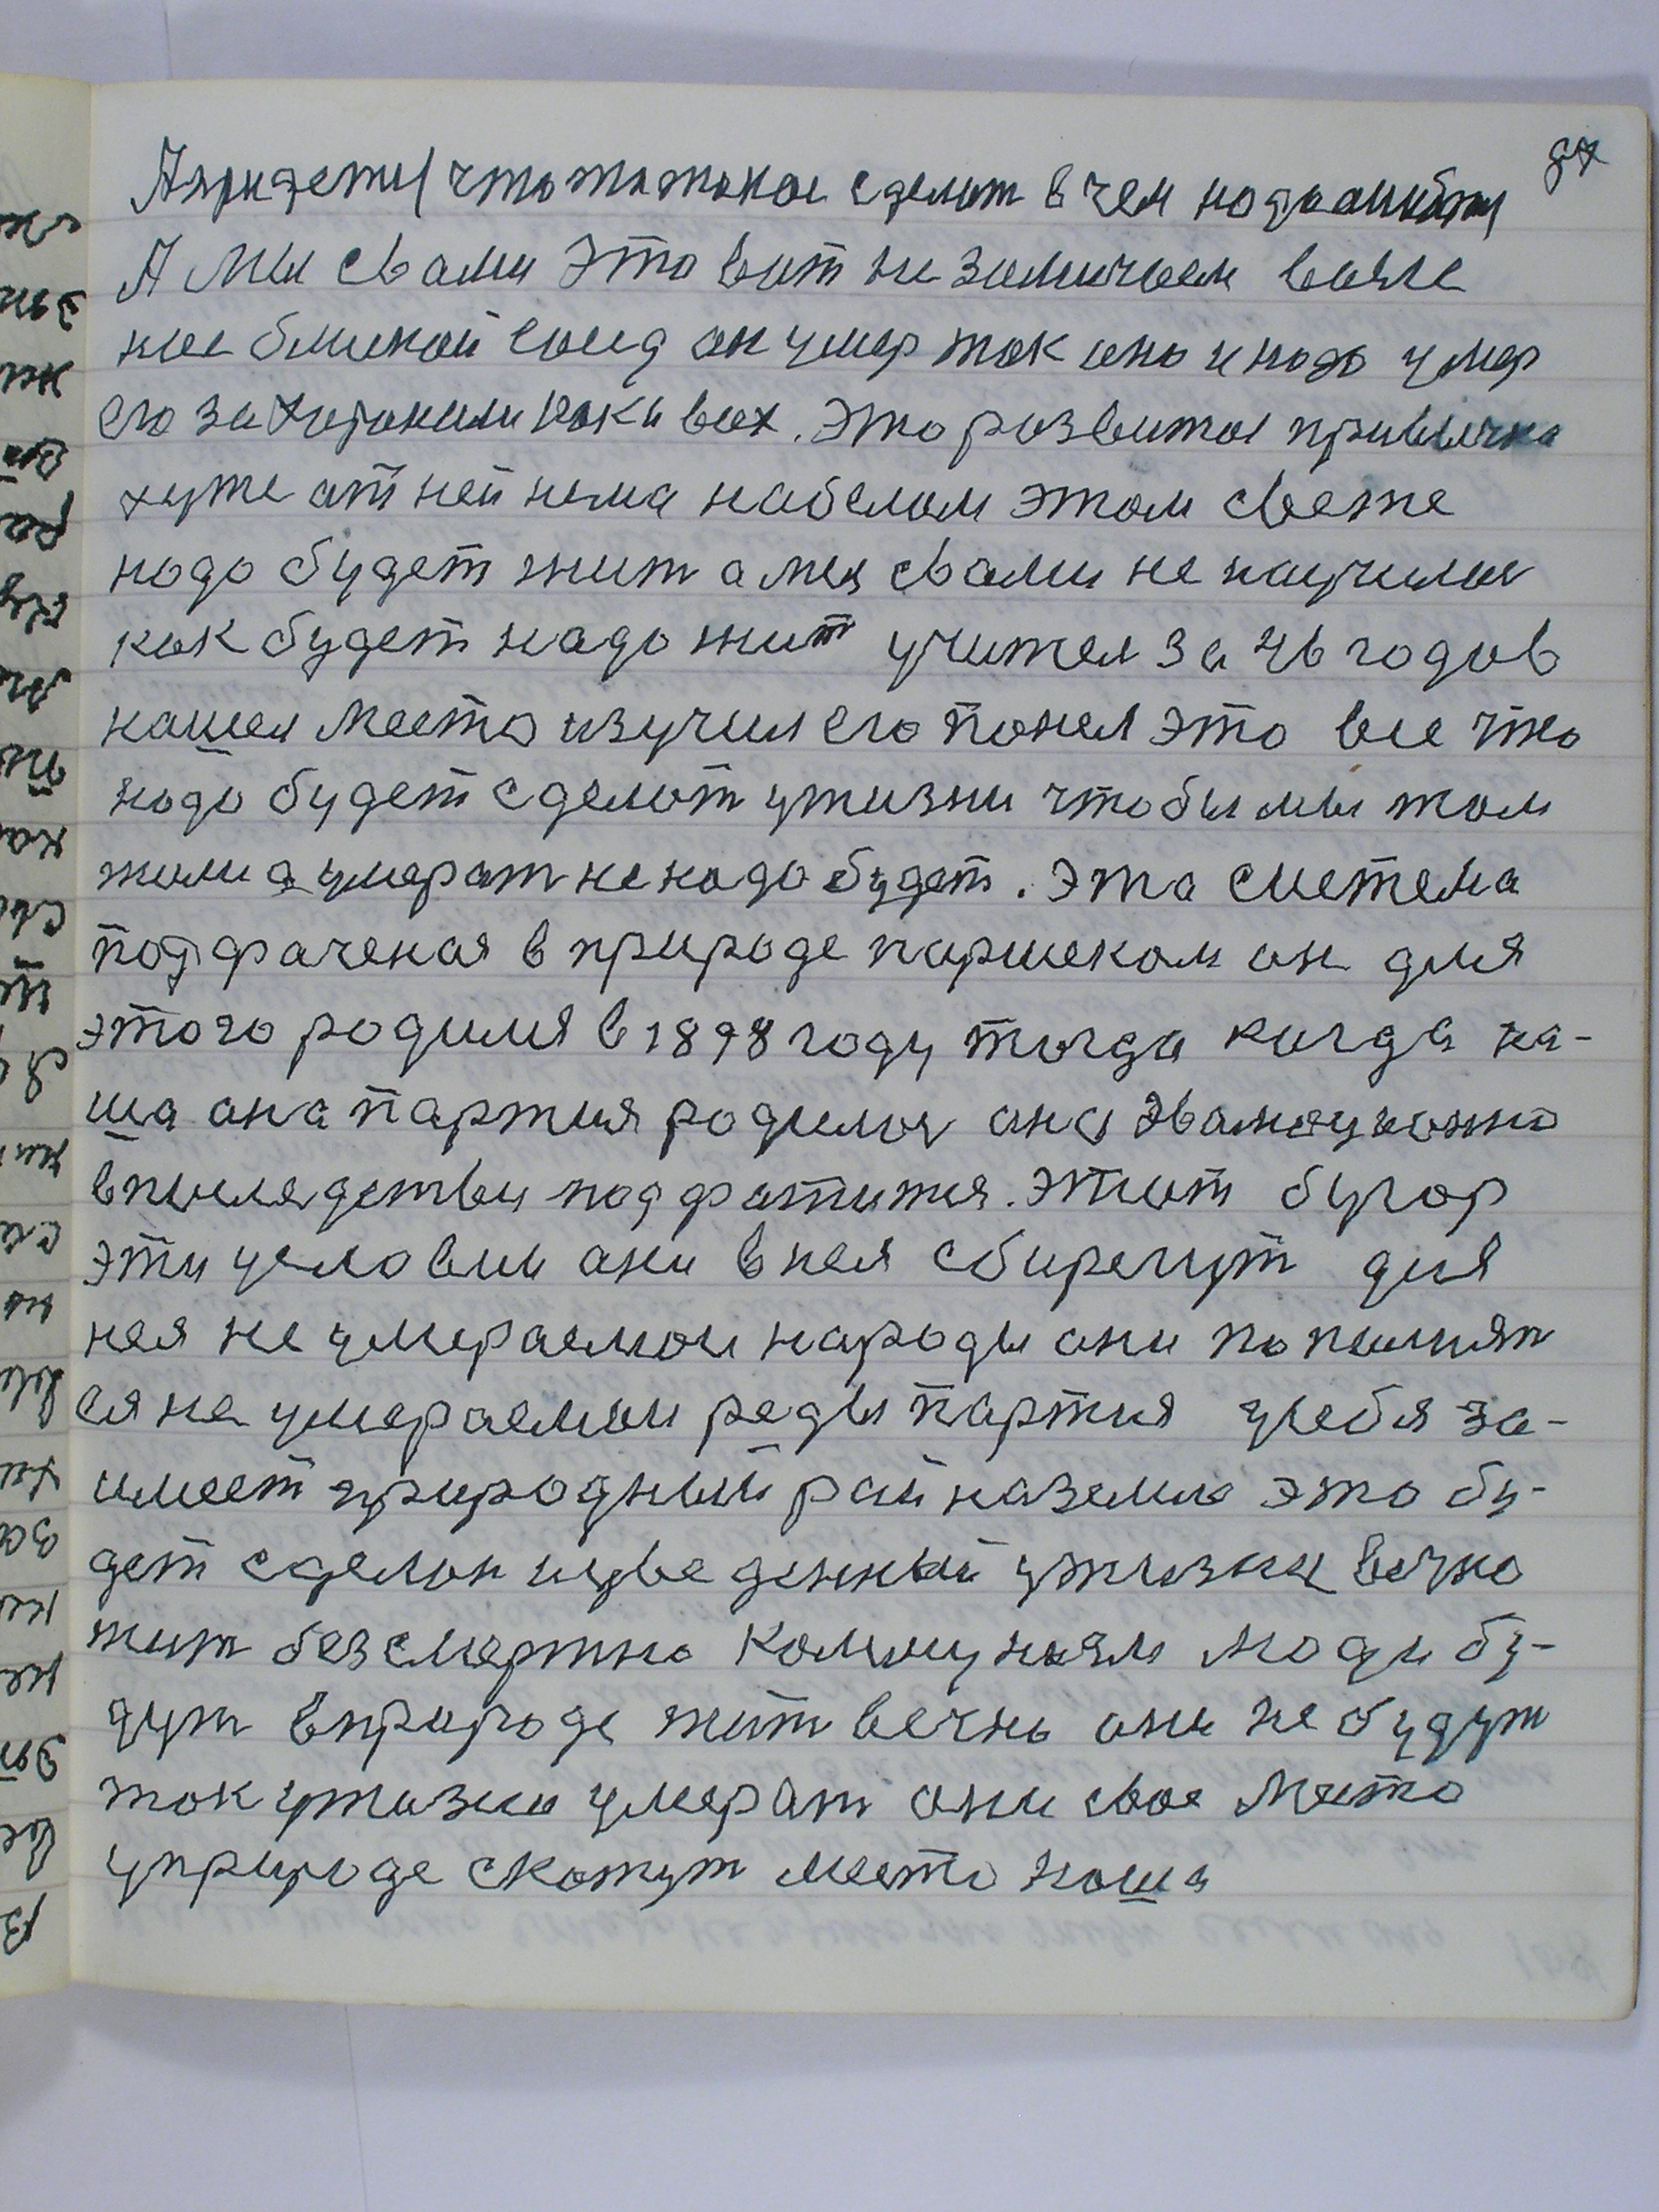 87
что то такое сделат в чем надо
А мы свами это вит не замичаем возле
нас близкой сосид он умер так ано и надо умер
его захоронили как и всех. Это развитое привычка
хуже от ней нема на белом этом свете
надо будет жит а мы свами не научились
как будет надо жит учител за 46 годов
нашел место изучил его понял это все что
надо будет сделат ужизни чтобы мы там
жили а умерат не надо будет. Эта система
подфаченая в природе паршеком он для
этого родился в 1898 году тогда когда на-
ша она партия родилась она
впоследствы подфатится. Этот бугор
эти условии они внея сберегут для
нея не умераемои народы они пополнят
ся не умераемои реды партия усебя за-
имеет природный рай на земле это бу-
дет сделан ужизни вечно
жит безсмертно Коммунизм люди бу-
дут в природе жит вечно они не будут
так ужизни умерат они свое место
уприроде скажут место наша